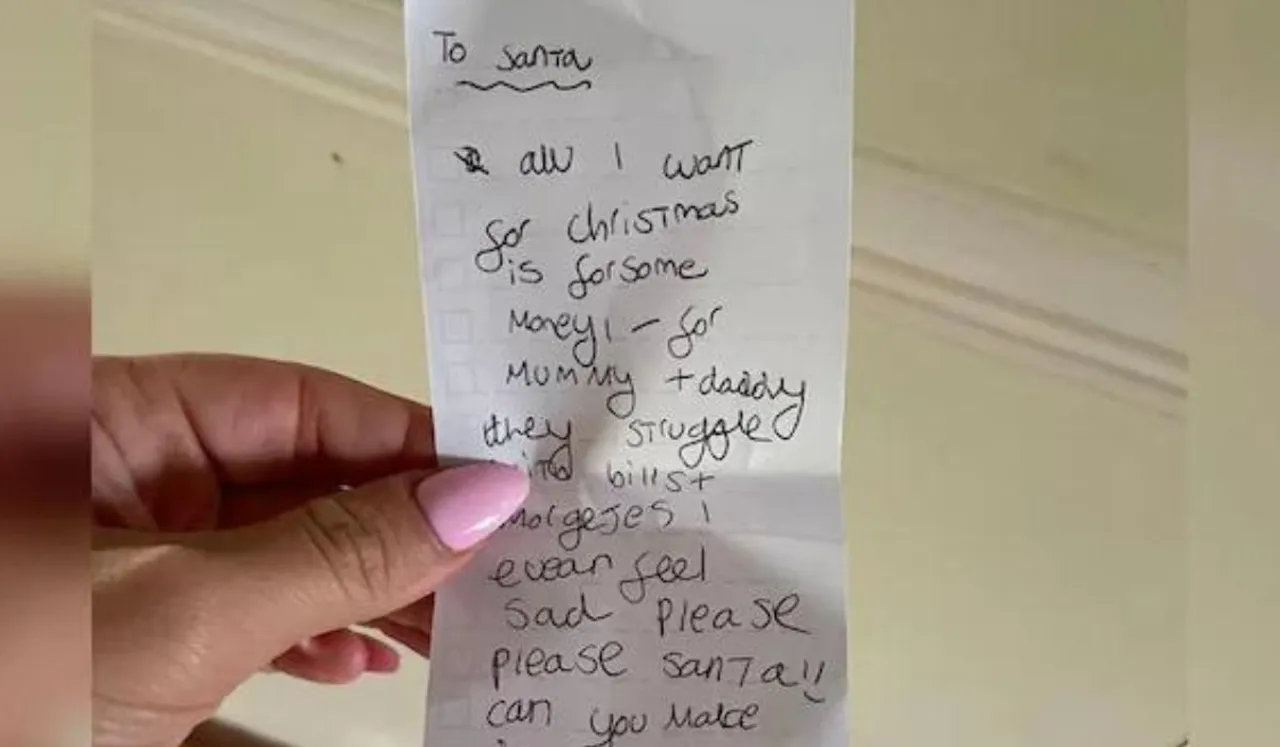 To Santa
all I want
for christmas
is forsome
Money, - for
Mummy + daddy
they struggle
bills +
morgejes I
evean feel
sad please
please santa!!
can you Make